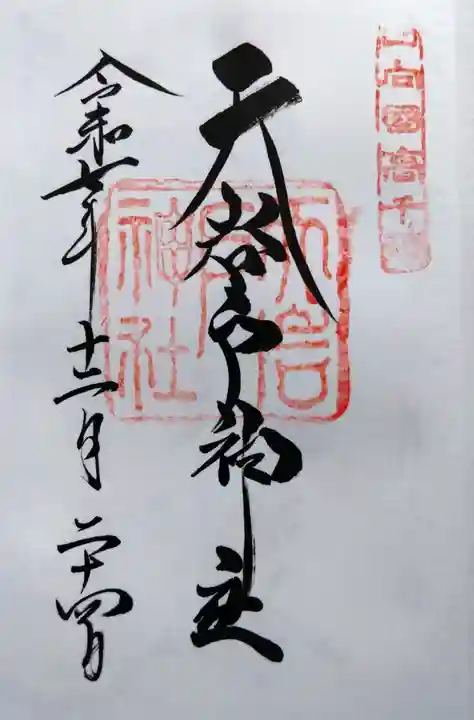 日向國高千穂
天岩戸神社
天岩戸神社
令和七年十二月二十四日